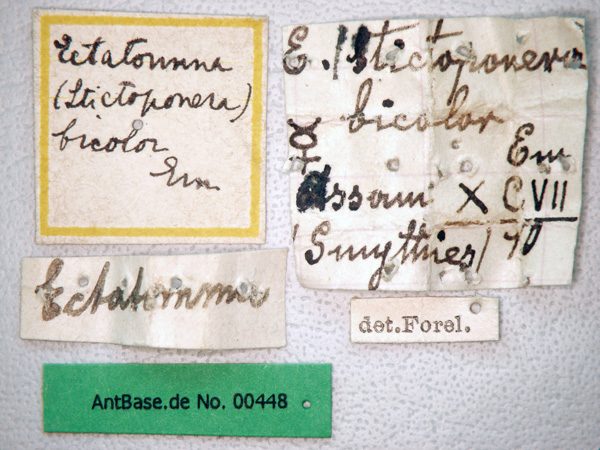 Ectatomma
(Stictoponera)
bicolor
Em
E. Stictoponera
bicolor
☿ Em
Assam X CVII
(Smythies)
Ectatomma
det.Forel.
AntBase.de No. 00448